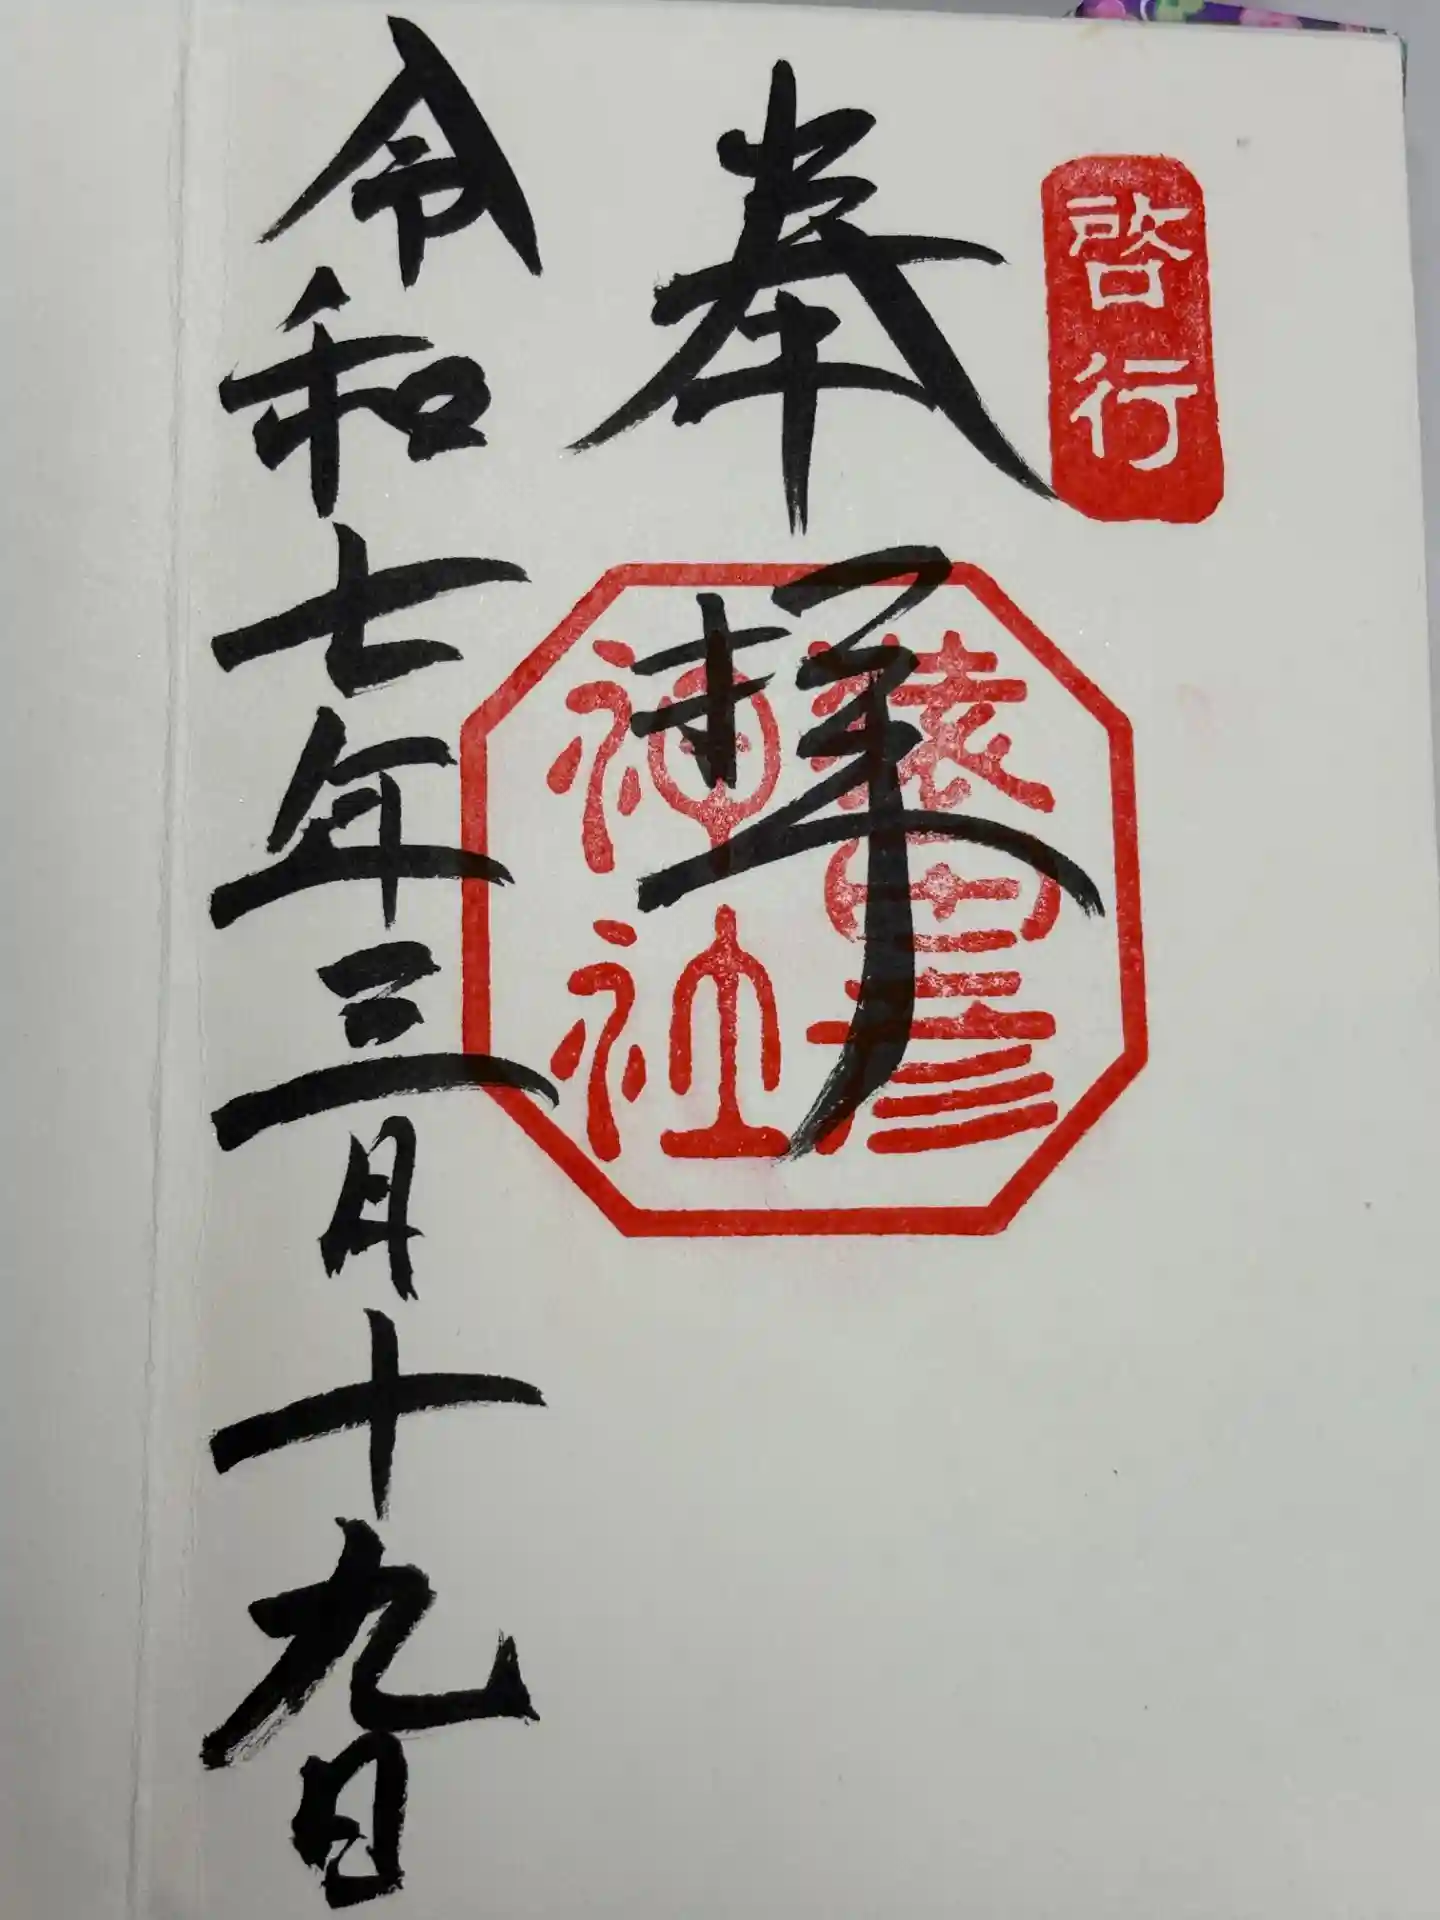 啓行
奉拝
猿田彦
神社
令和七年三月十九日